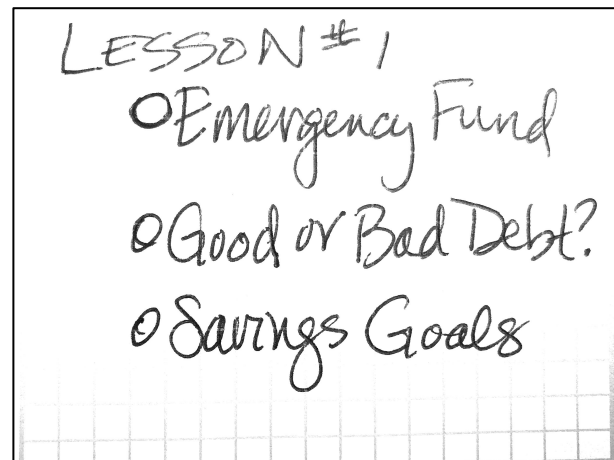 LESSON #1
Emergency Fund
Good or Bad Debt?
Savings Goals